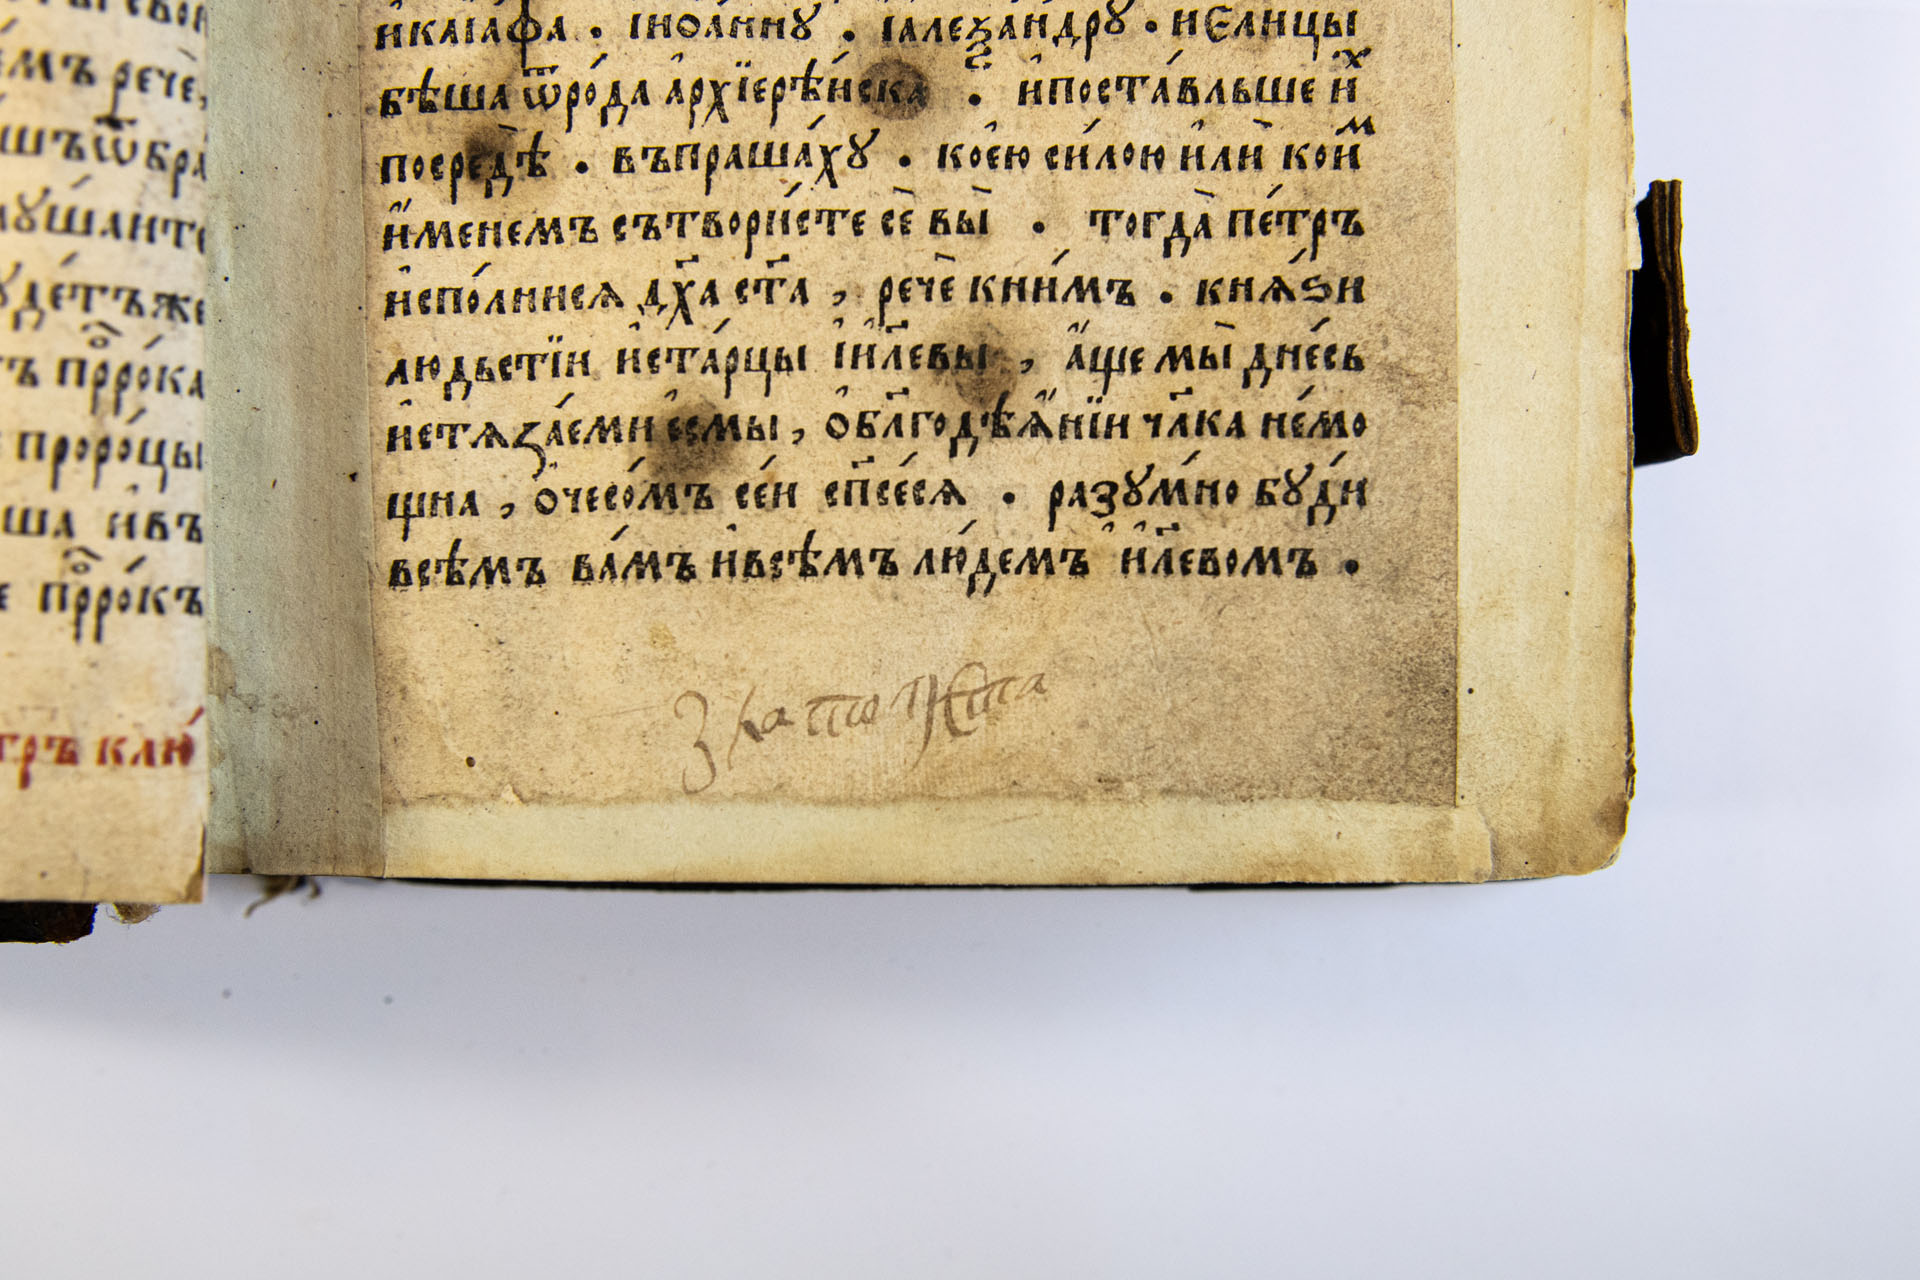 речѐ,
пррⷪ҇о́ка
проро́цы
ша и҆въ
прⷪ҇ро́къ
клю́
и҆каїа́фа . і҆иѻа́нну . і҆алеѯа́ндру . иЄлицы
бѣ́ша ѿро́да а҆рхїерѣ́йска . и҆поста́вльше и҆ⷯ
посредѣ̀ . въпраша́ху . ко́ею си́лою и҆лѝ коиⷨ
и҆́менемъ сътвори́сте сѐ вы̀ . тогда̀ пе́тръ
и҆спо́лнися дх҃а ст҃а , речѐ кни́мъ . кнѧ́ѕи
людьстїи и҆ста́рцы і҆и҃левы , а҆́ще мы̀ дне́сь
и҆стѧза́еми е҆смы , ѻ҆бл҃годѣѧ҆́нїи чл҃ка не́мо
щна , ѻ҆чесо́мъ се́и сп҃се́сѧ . разу́мно бу́ди
всѣ́мъ ва́мъ и҆всѣ́мъ лю́демъ и҆и҃левомъ .